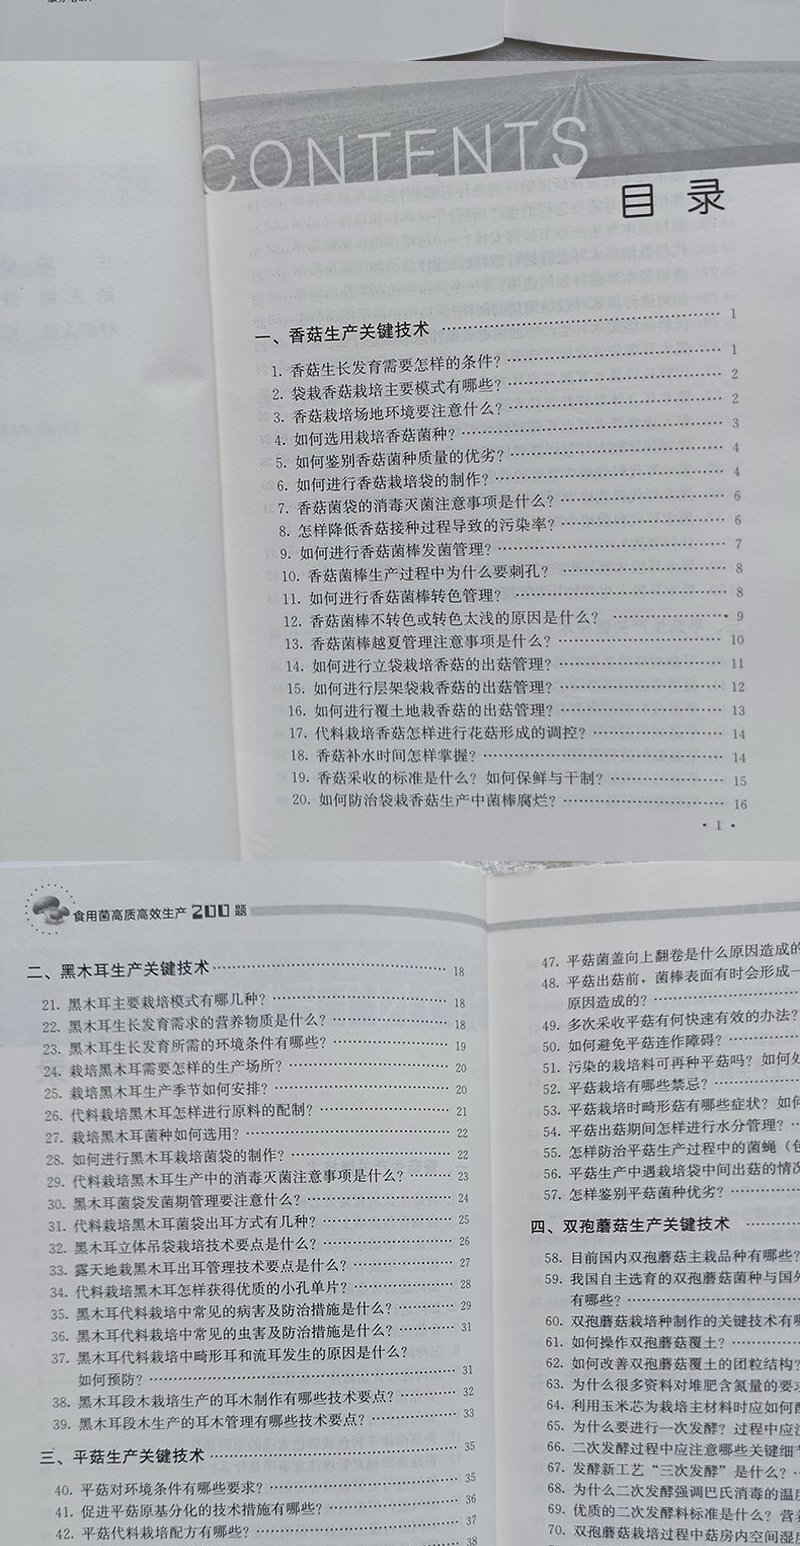 CONTENTS
目 录
一、香菇生产关键技术 …… 1
1. 香菇生长发育需要怎样的条件? …… 1
2. 袋栽香菇栽培主要模式有哪些? …… 2
3. 香菇栽培场地环境要注意什么? …… 2
4. 如何选用栽培香菇菌种? …… 3
5. 如何鉴别香菇菌种质量的优劣? …… 4
6. 如何进行香菇栽培袋的制作? …… 4
7. 香菇菌袋的消毒灭菌注意事项是什么? …… 6
8. 怎样降低香菇接种过程导致的污染率? …… 6
9. 如何进行香菇菌棒发菌管理? …… 7
10. 香菇菌棒生产过程中为什么要刺孔? …… 8
11. 如何进行香菇菌棒转色管理? …… 8
12. 香菇菌棒不转色或转色太浅的原因是什么? …… 9
13. 香菇菌棒越夏管理注意事项是什么? …… 10
14. 如何进行立袋栽培香菇的出菇管理? …… 11
15. 如何进行层架袋栽香菇的出菇管理? …… 12
16. 如何进行覆土地栽香菇的出菇管理? …… 13
17. 代料栽培香菇怎样进行花菇形成的调控? …… 14
18. 香菇补水时间怎样掌握? …… 14
19. 香菇采收的标准是什么? 如何保鲜与干制? …… 15
20. 如何防治袋栽香菇生产中菌棒腐烂? …… 16
· 1 ·
食用菌高质高效生产200题
二、黑木耳生产关键技术 …… 18
21. 黑木耳主要栽培模式有哪几种? …… 18
22. 黑木耳生长发育需求的营养物质是什么? …… 18
23. 黑木耳生长发育所需的环境条件有哪些? …… 19
24. 栽培黑木耳需要怎样的生产场所? …… 20
25. 栽培黑木耳生产季节如何安排? …… 20
26. 代料栽培黑木耳怎样进行原料的配制? …… 21
27. 栽培黑木耳菌种如何选用? …… 22
28. 如何进行黑木耳栽培菌袋的制作? …… 22
29. 代料栽培黑木耳生产中的消毒灭菌注意事项是什么? …… 23
30. 黑木耳菌袋发菌期管理要注意什么? …… 24
31. 代料栽培黑木耳菌袋出耳方式有几种? …… 25
32. 黑木耳立体吊袋栽培技术要点是什么? …… 26
33. 露天地栽黑木耳出耳管理技术要点是什么? …… 27
34. 代料栽培黑木耳怎样获得优质的小孔单片? …… 28
35. 黑木耳代料栽培中常见的病害及防治措施是什么? …… 29
36. 黑木耳代料栽培中常见的虫害及防治措施是什么? …… 31
37. 黑木耳代料栽培中畸形耳和流耳发生的原因是什么?
如何预防? …… 31
38. 黑木耳段木栽培生产的耳木制作有哪些技术要点? …… 32
39. 黑木耳段木生产的耳木管理有哪些技术要点? …… 33
三、平菇生产关键技术 …… 35
40. 平菇对环境条件有哪些要求? …… 35
41. 促进平菇原基分化的技术措施有哪些? …… 36
42. 平菇代料栽培配方有哪些? …… 37
38
47. 平菇菌盖向上翻卷是什么原因造成的
48. 平菇出菇前，菌棒表面有时会形成一
原因造成的? ……
49. 多次采收平菇有何快速有效的办法?
50. 如何避免平菇连作障碍? ……
51. 污染的栽培料可再种平菇吗? 如何处
52. 平菇栽培有哪些禁忌? ……
53. 平菇栽培时畸形菇有哪些症状? 如何
54. 平菇出菇期间怎样进行水分管理? ……
55. 怎样防治平菇生产过程中的菌蝇（包
56. 平菇生产中遇栽培袋中间出菇的情况
57. 怎样鉴别平菇菌种优劣? ……
四、双孢蘑菇生产关键技术 ……
58. 目前国内双孢蘑菇主栽品种有哪些?
59. 我国自主选育的双孢蘑菇菌种与国外
有哪些? ……
60. 双孢蘑菇栽培种制作的关键技术有哪
61. 如何操作双孢蘑菇覆土? ……
62. 如何改善双孢蘑菇覆土的团粒结构?
63. 为什么很多资料对堆肥含氮量的要求
64. 利用玉米芯为栽培主材料时应如何
65. 为什么要进行一次发酵? 过程中应注
66. 二次发酵过程中应注意哪些关键细节
67. 发酵新工艺“三次发酵”是什么? ……
68. 为什么二次发酵强调巴氏消毒的温度
69. 优质的二次发酵料标准是什么? 营养
70. 双孢蘑菇栽培过程中菇房内空间湿度